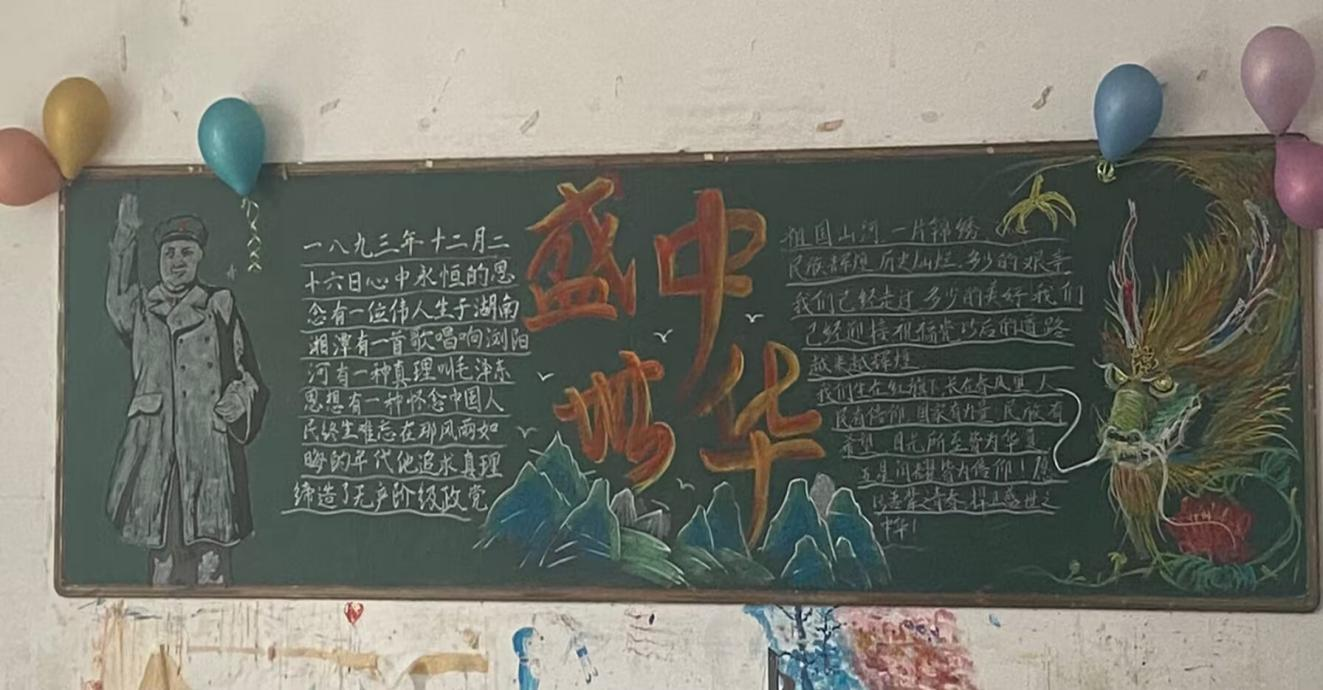 一八九三年十二月二
十六日心中永恒的思
念有一位伟人生于湖南
湘潭有一首歌唱响浏阳
河有一种真理叫毛泽东
思想有一种怀念中国人
民终生难忘在那风雨如
晦的年代他追求真理
缔造了无产阶级政党
盛世
中华
祖国山河一片锦绣
民族辉煌历史灿烂多少的艰辛
我们已经走过多少的美好我们
已经迎接
以后的道路
越来越辉煌
我们生在红旗下长在春风里人
民有信仰国家有力量民族有
希望目光所至皆为华夏
五星闪耀皆为信仰！愿
以吾辈之青春捍卫盛世之
中华！